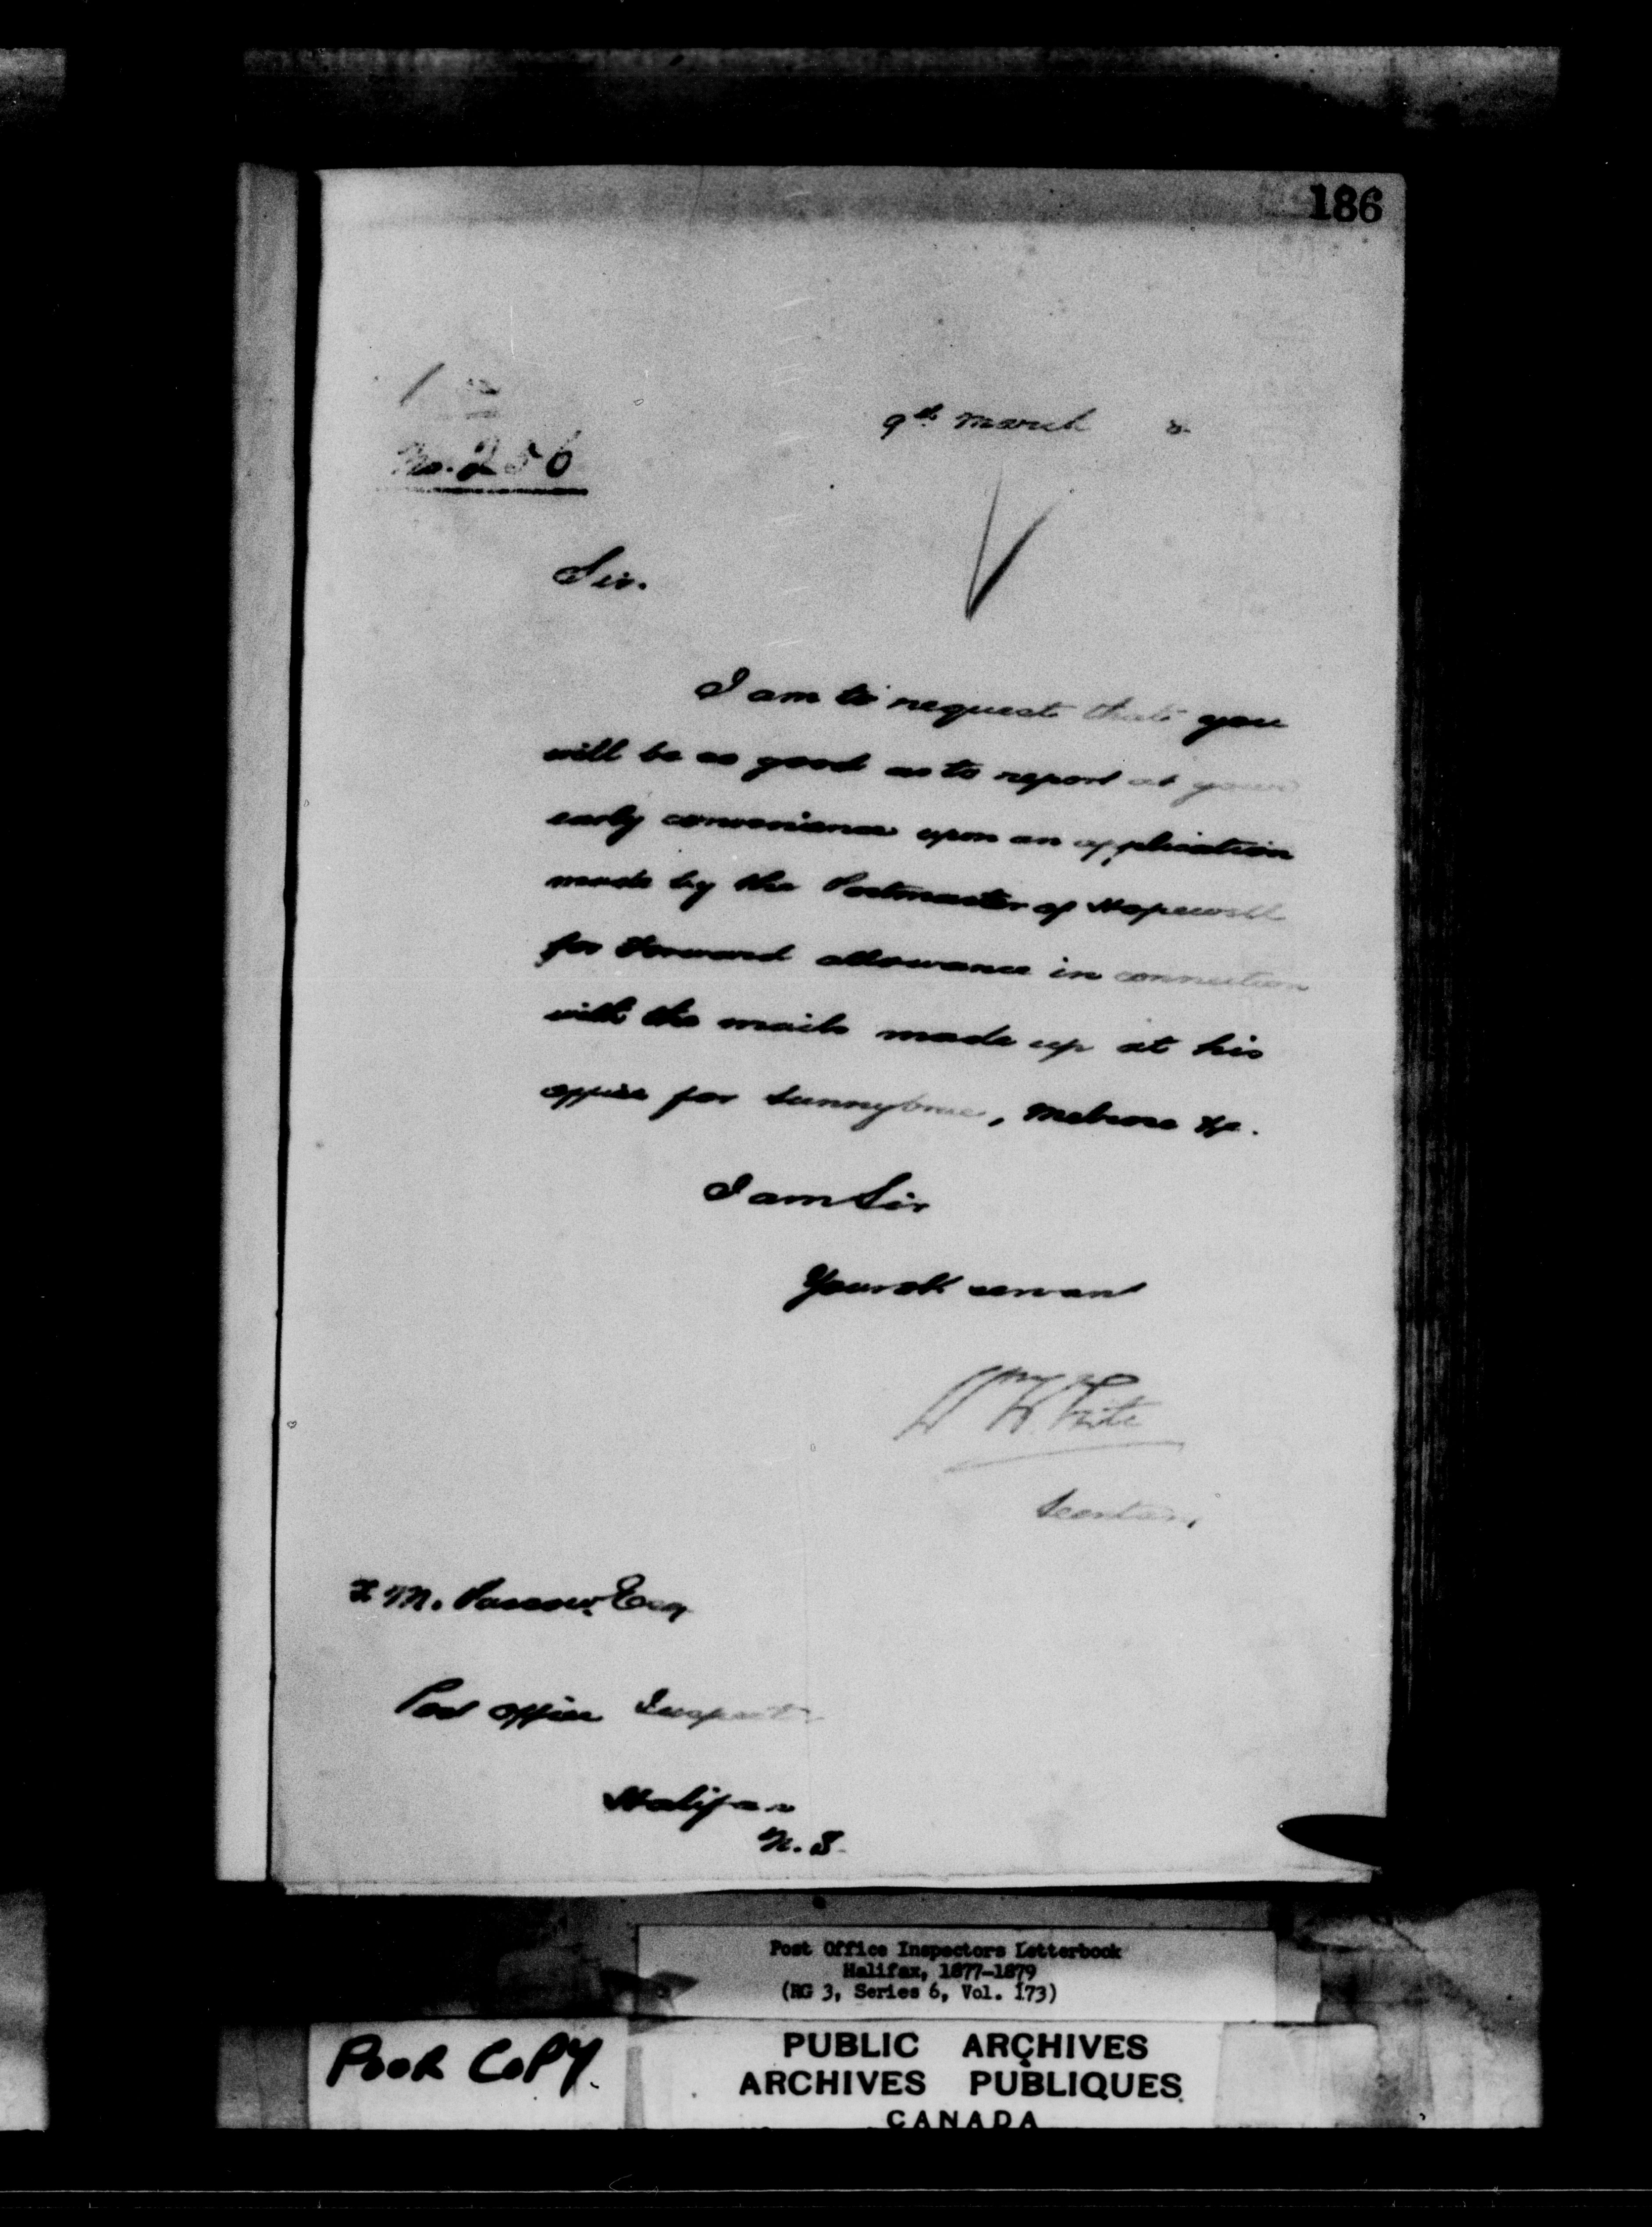 186
9th March 8
No. 256
Sir.
I am to request that you
will be so good as to report at your
early convenience upon an application
made by the Postmaster of Hopewell
for Forward allowance in connection
with the mails made up at his
office for Sunnybrae, Melrose &c.
I am Sir
Your ob. servant
Wm White
Secretary
F. M. Passow, Esq
Post Office Inspector
Halifax
N. S.
Post Office Inspectors Letterbook
Halifax, 1877-1879
(RG 3, Series 6, Vol. 173)
POOR COPY.
PUBLIC ARCHIVES
ARCHIVES PUBLIQUES
CANADA